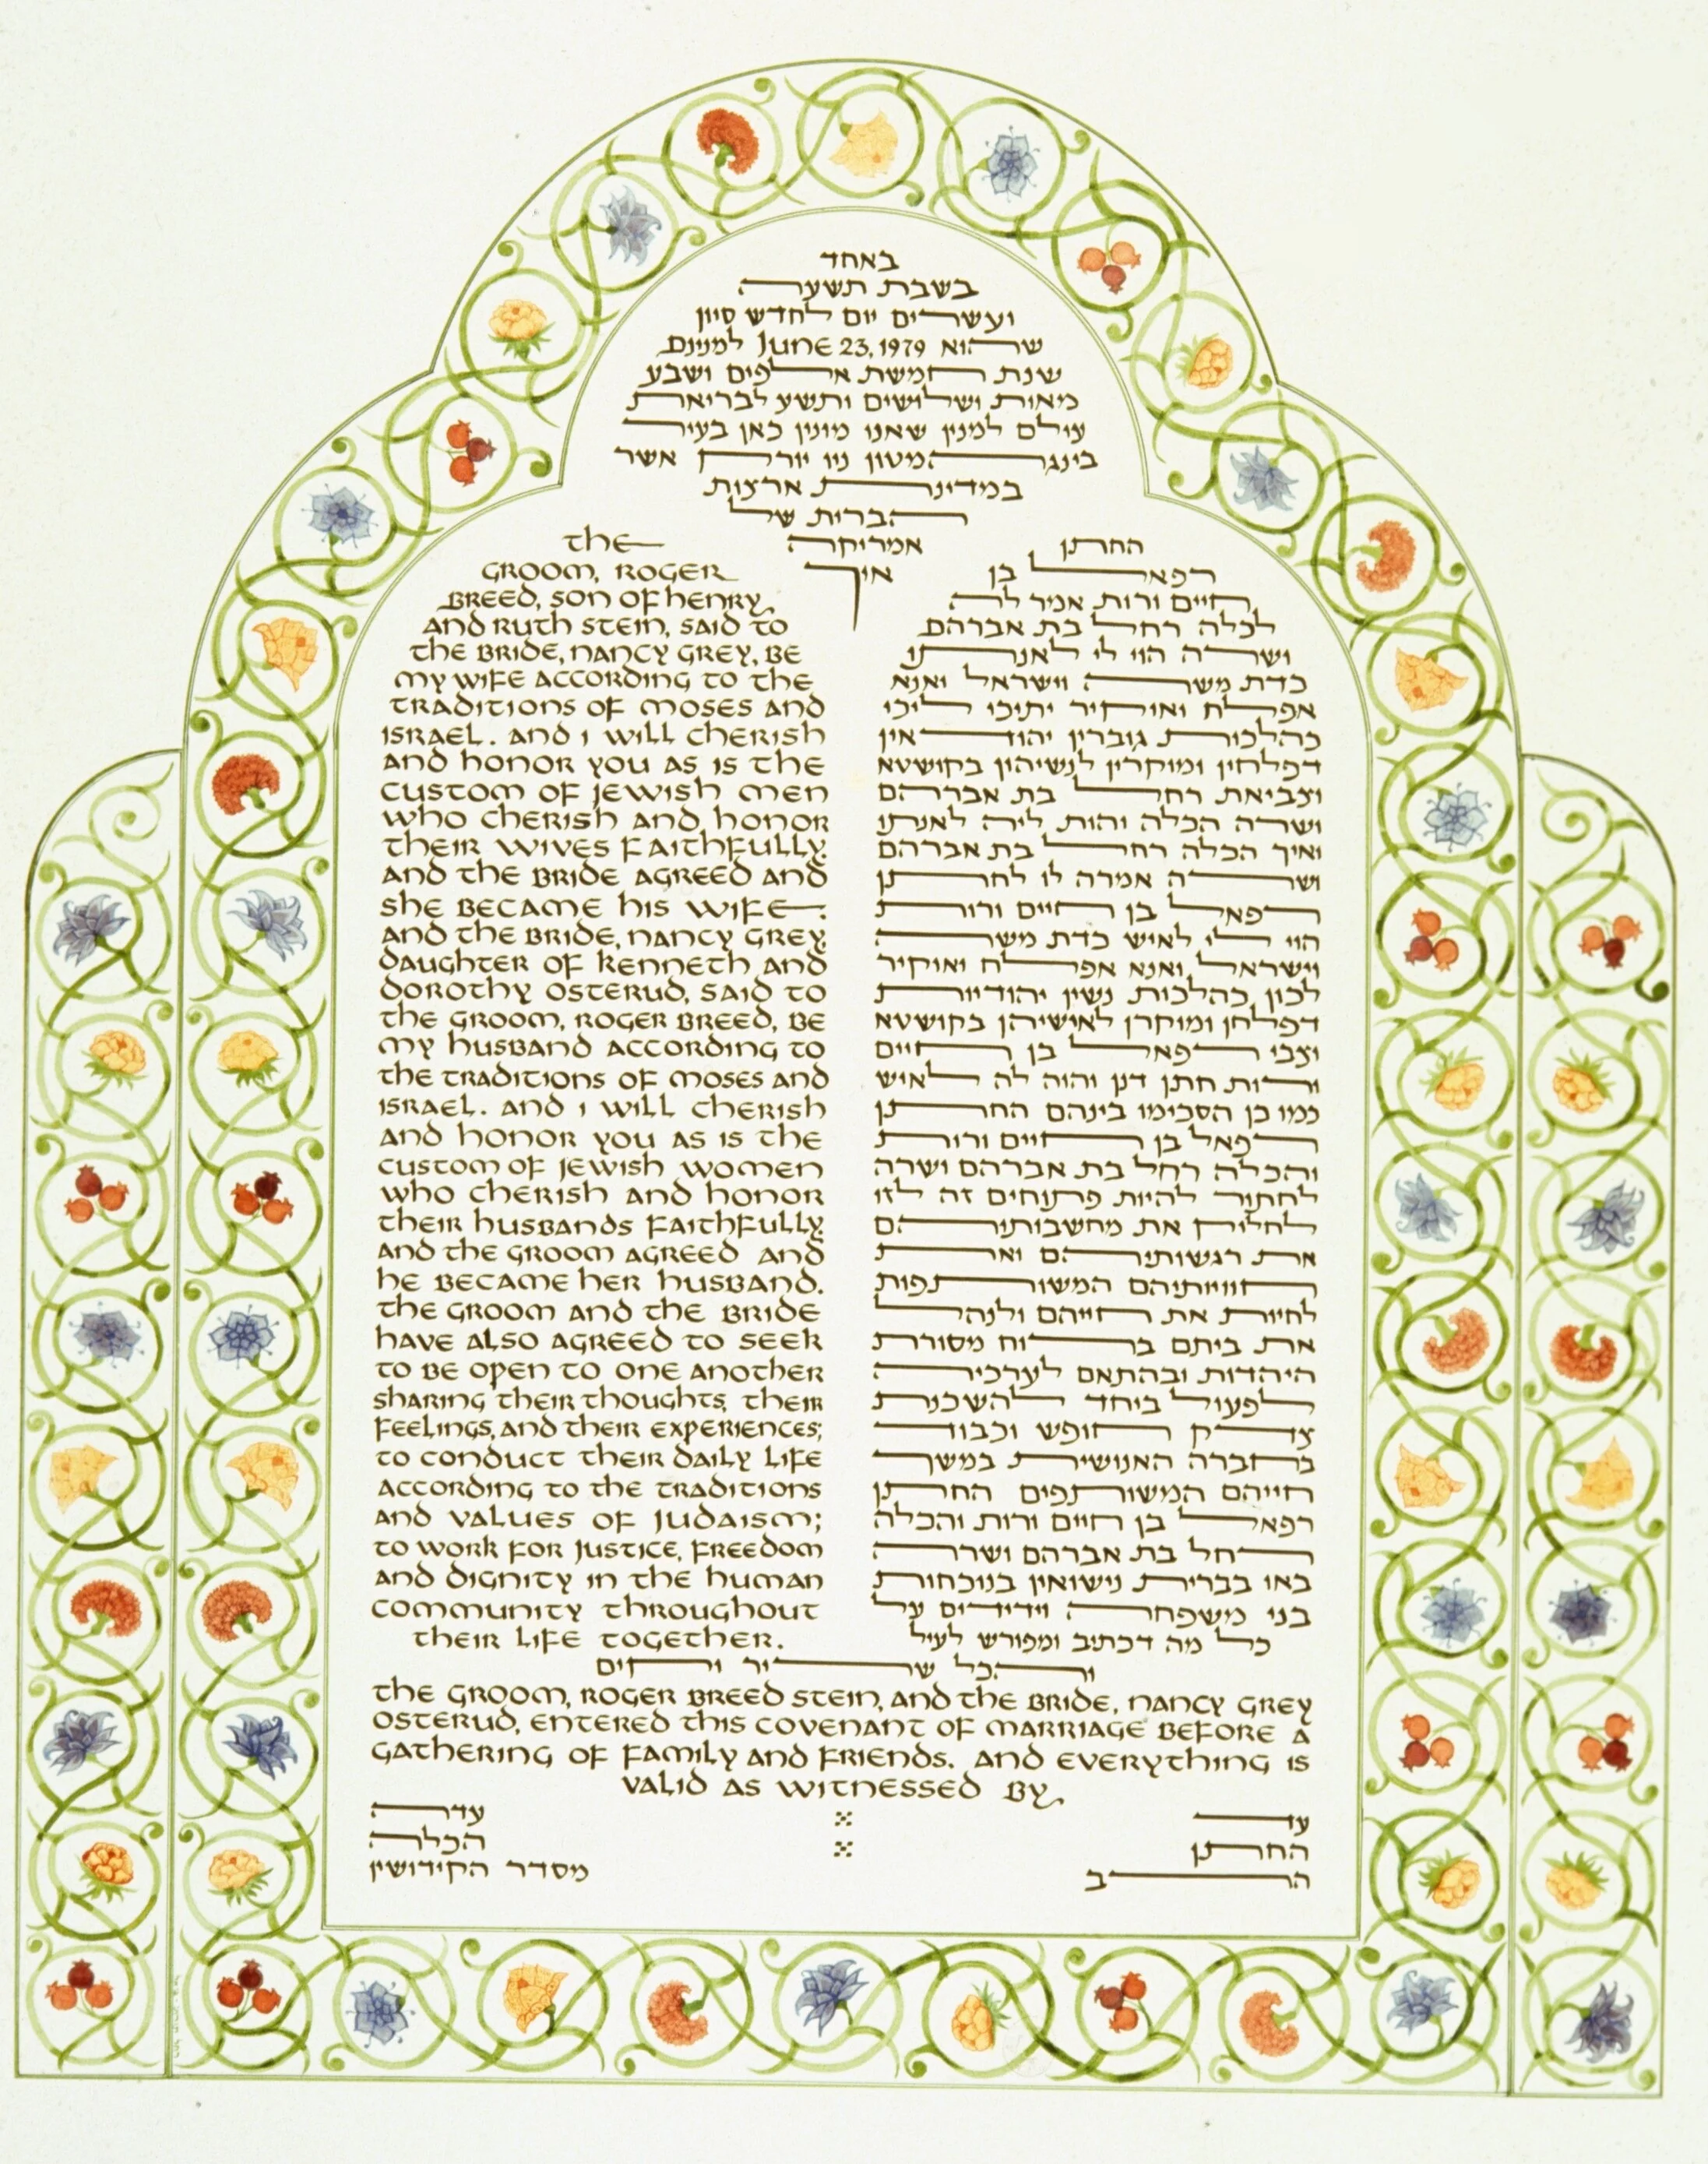 באחד
בשבת תשעה
ועשרים יום לחדש סיון
שהוא June 23, 1979 למנינם
שנת חמשת אלפים ושבע
מאות ושלושים ותשע לבריאת
עולם למנין שאנו מונין כאן בעיר
בינגהמטון ניו יורק אשר
במדינת ארצות
הברית של
אמריקה
איך
החתן
רפאל בן
חיים ורות אמר לה
לכלה רחל בת אברהם
ושרה הוי לי לאנתו
כדת משה וישראל ואנא
אפלח ואוקיר יתיכי ליכי
כהלכות גוברין יהודאין
דפלחין ומוקרין לנשיהון בקושטא
וצביאת רחל בת אברהם
ושרה הכלה והות ליה לאנתו
ואיך הכלה רחל בת אברהם
ושרה אמרה לו לחתן
רפאל בן חיים ורות
הוי לי לאיש כדת משה
וישראל ואנא אפלח ואוקיר
לכון כהלכות נשין יהודיות
דפלחן ומוקרן לאישיהן בקושטא
וצבי רפאל בן חיים
ורות חתן דנן והוה לה לאיש
כמו כן הסכימו בינהם החתן
רפאל בן חיים ורות
והכלה רחל בת אברהם ושרה
לחתור להיות פתוחים זה לזו
לחלוק את מחשבותיהם
את רגשותיהם ואת
חוויותיהם המשותפות
לחיות את חייהם ולנהל
את ביתם ברוח מסורת
היהדות ובהתאם לערכיה
לפעול ביחד להשכנת
צדק חופש וכבוד
בחברה האנושית במשך
חייהם המשותפים החתן
רפאל בן חיים ורות והכלה
רחל בת אברהם ושרה
באו בברית נישואין בנוכחות
בני משפחה וידידים על
כל מה דכתיב ומפורש לעיל
the
groom, Roger
Breed, son of Henry
and Ruth Stein, said to
the bride, Nancy Grey, be
my wife according to the
traditions of Moses and
Israel. And I will cherish
and honor you as is the
custom of Jewish men
who cherish and honor
their wives faithfully.
And the bride agreed and
she became his wife.
And the bride, Nancy Grey,
daughter of Kenneth and
Dorothy Osterud, said to
the groom, Roger Breed, be
my husband according to
the traditions of Moses and
Israel. And I will cherish
and honor you as is the
custom of Jewish women
who cherish and honor
their husbands faithfully.
And the groom agreed and
he became her husband.
The groom and the bride
have also agreed to seek
to be open to one another
sharing their thoughts, their
feelings, and their experiences;
to conduct their daily life
according to the traditions
and values of Judaism;
to work for justice, freedom
and dignity in the human
community throughout
their life together.
והכל שריר וקים
The groom, Roger Breed Stein, and the bride, Nancy Grey
Osterud, entered this covenant of marriage before a
gathering of family and friends. And everything is
valid as witnessed by,
עד
החתן
הרב
עדה
הכלה
מסדר הקידושין